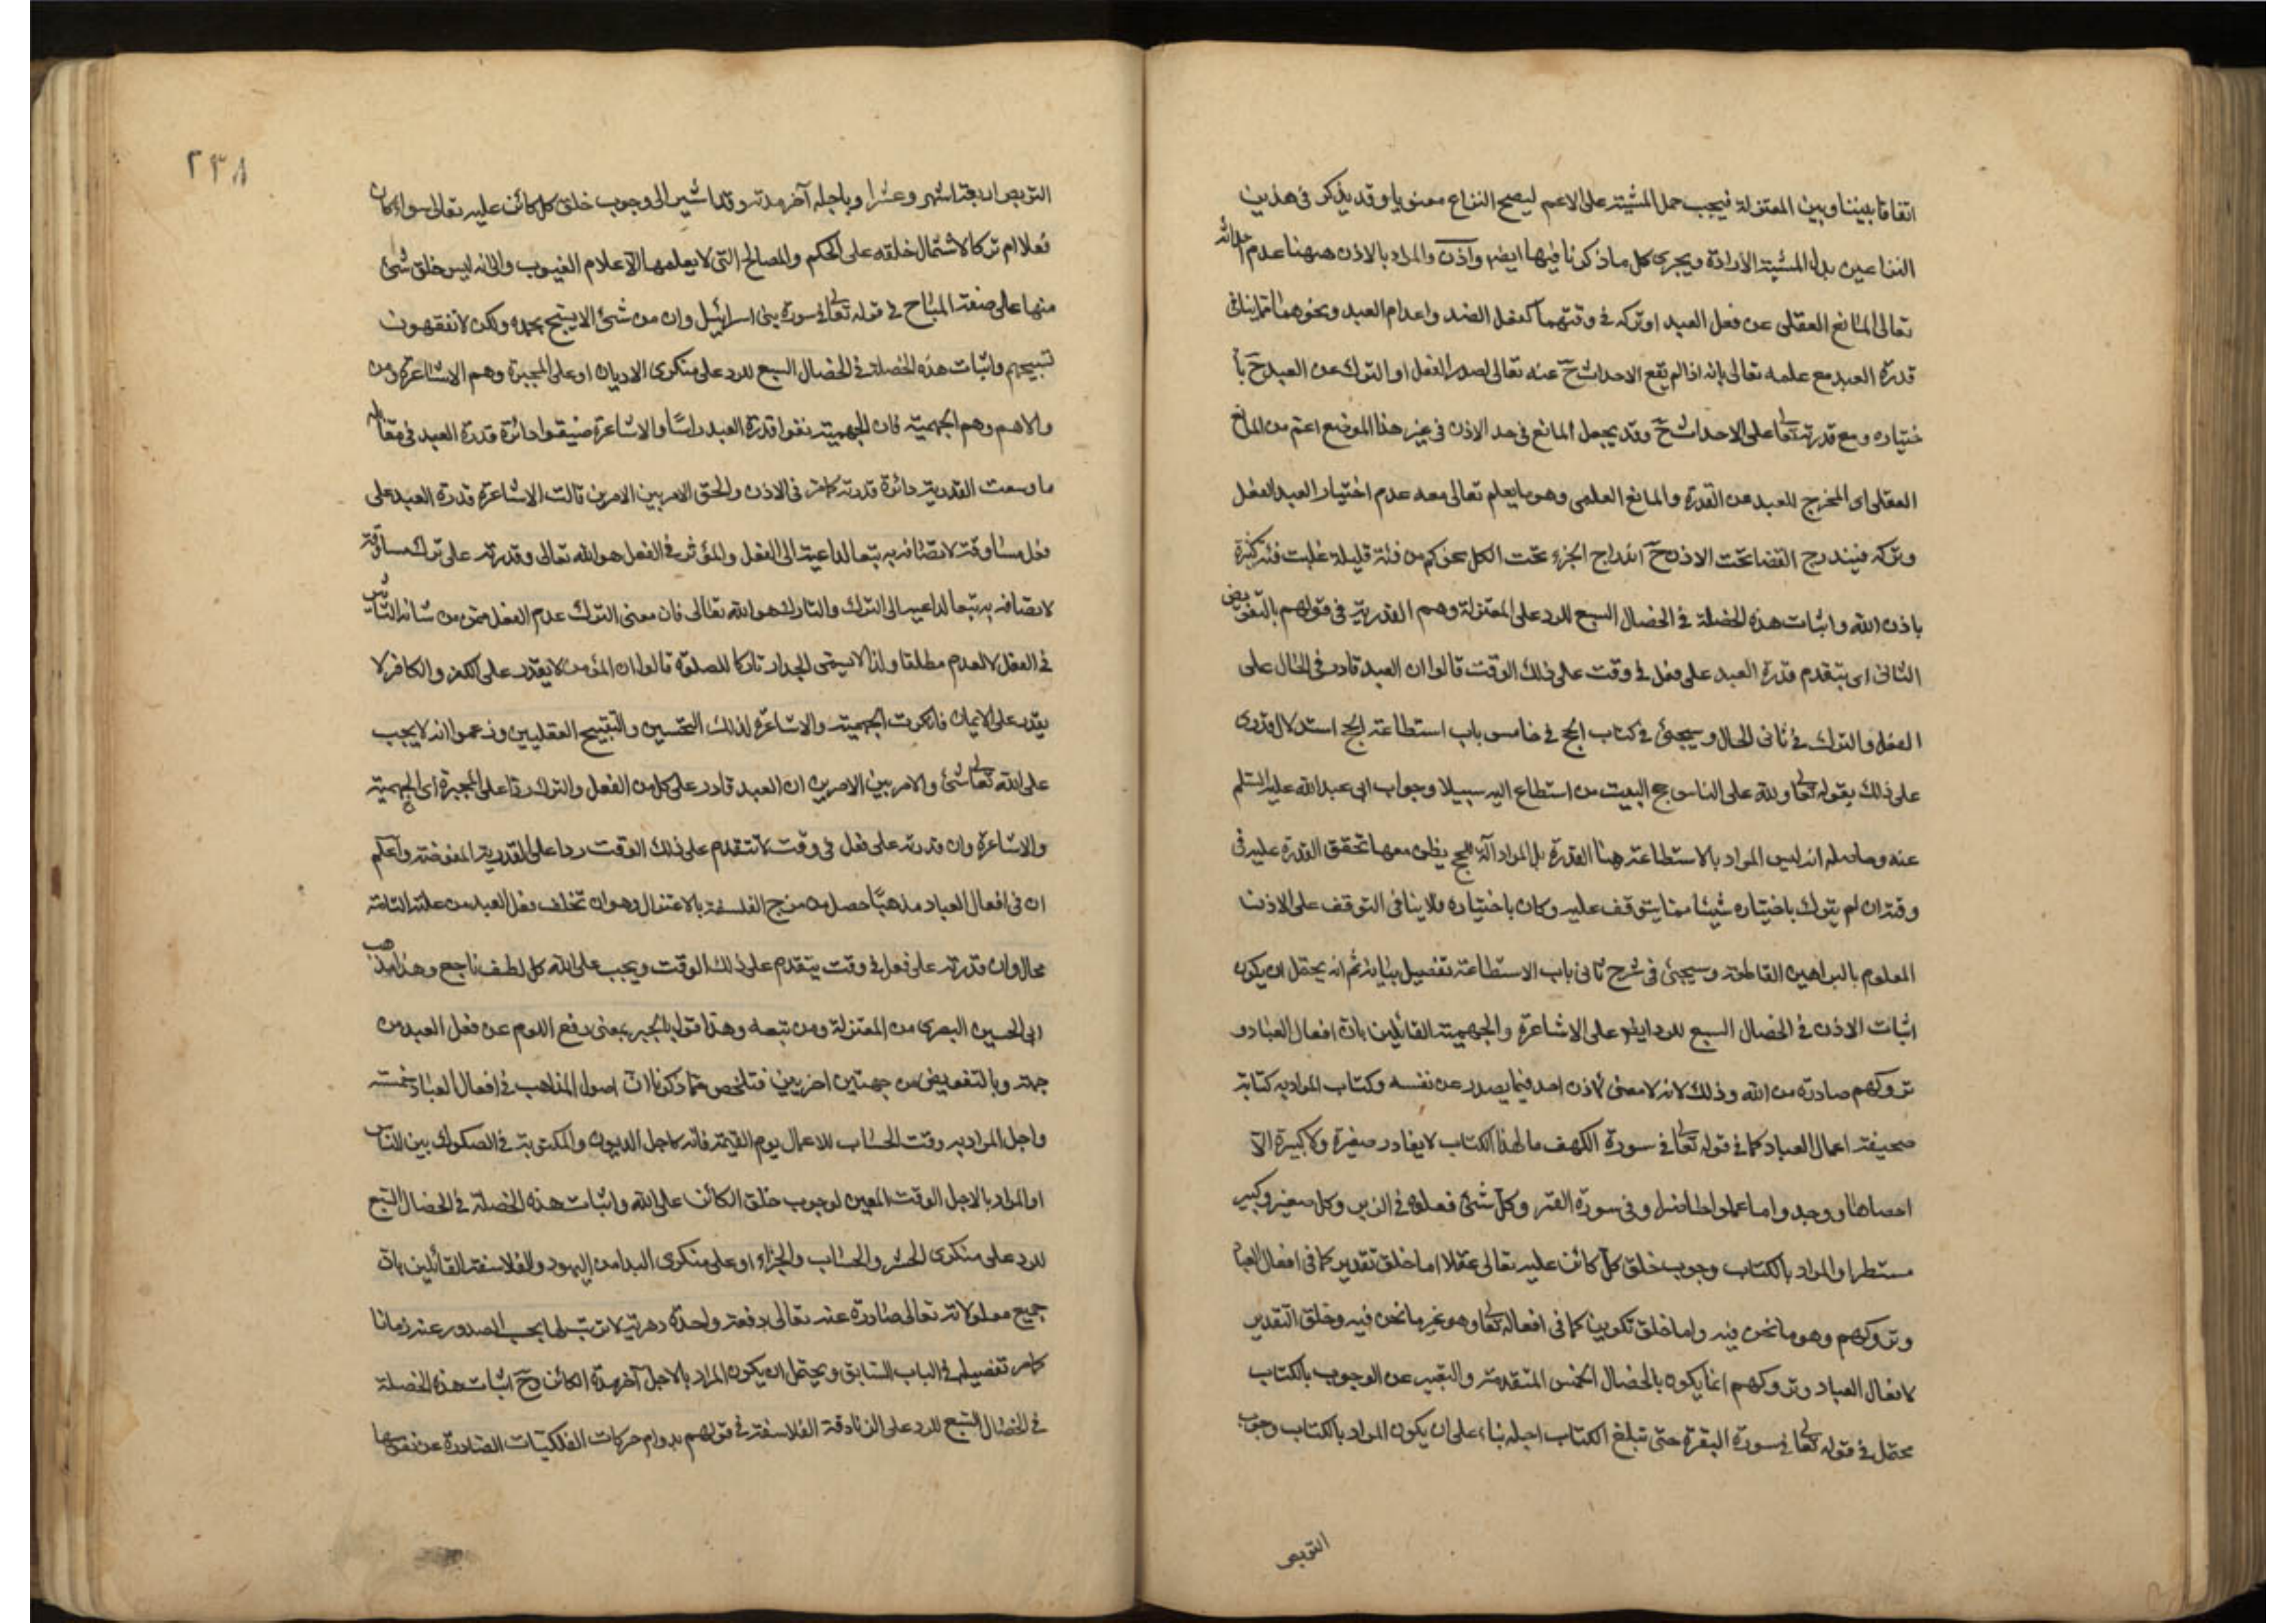 اتفاقا بيننا وبين المعتزلة فيجب حمل المشية على الاعم ليصح النزاع معنويا وقد يذكر في هذين
النزاعين بدل المشية الارادة ويجرى كل ما ذكرنا فيها ايضا واذن والمراد بالاذن ههنا عدم احداثه
تعالى المانع العقلى عن فعل العبد او تركه في وقتهما كفعل الضد واعدام العبد ونحوهما مما ينافى
قدرة العبد مع علمه تعالى بانه اذا لم يقع الاحداث ح عنه تعالى لصدر الفعل او الترك عن العبد ح با
ختياره ومع قدرته تعالى على الاحداث ح وقد يجعل المانع في حد الاذن في غير هذا الموضع اعم من المانع
العقلى اى المخرج للعبد عن القدرة والمانع العلمى وهو ما يعلم تعالى معه عدم اختيار العبد الفعل
وتركه فيندرج القضا تحت الاذن ح اندراج الجزء تحت الكل نحو كم من فئة قليلة غلبت فئة كثيرة
باذن الله واثبات هذه الخصلة في الخصال السبع للرد على المعتزلة وهم القدرية في قولهم بالتفويض
الثانى اى بتقدم قدرة العبد على فعل في وقت على ذلك الوقت قالوا ان العبد قادر في الحال على
الفعل والترك في ثانى الحال وسيجئ في كتاب الحج في خامس باب استطاعة الحج استدلال قدرى
على ذلك بقوله تعالى ولله على الناس حج البيت من استطاع اليه سبيلا وجواب ابى عبد الله عليه السلم
عنه وحاصله انه ليس المراد بالاستطاعة هنا القدرة بل المراد آلة للحج يظن معها تحقق القدرة عليه في
وقته ان لم يترك باختياره شيئا مما يتوقف عليه وكان باختياره فلا ينافى التوقف على الاذن
المعلوم بالبراهين القاطعة وسيجئ في شرح ثانى باب الاستطاعة تفصيل بيانه ثم انه يحتمل ان يكون
اثبات الاذن في الخصال السبع للرد ايضا على الاشاعرة والجهمية القائلين بان افعال العباد و
تروكهم صادرة من الله وذلك لانه لا معنى لاذن احد فيما يصدر عن نفسه وكتاب المراد به كتابة
صحيفة اعمال العباد كما في قوله تعالى في سورة الكهف مال هذا الكتاب لا يغادر صغيرة ولا كبيرة الا
احصاها ووجدوا ما عملوا حاضرا وفي سورة القمر وكل شئ فعلوه في الزبر وكل صغير وكبير
مستطر او المراد بالكتاب وجوب خلق كل كائن عليه تعالى عقلا اما خلق تقدير كما في افعال العباد
وتروكهم وهو ما نحن فيه واما خلق تكوين كما في افعاله تعالى وهو غير ما نحن فيه وخلق التقدير
لافعال العباد وتروكهم انما يكون بالخصال الخمس المتقدمة والتعبير عن الوجوب بالكتاب
محتمل في قوله تعالى في سورة البقرة حتى تبلغ الكتاب اجله بناء على ان يكون المراد بالكتاب وجوب
التربص
٢٣٨
التربص اربعة اشهر وعشرا وباجله آخر مدته وقد اشير الى وجوب خلق كل كائن عليه تعالى سواء كان
فعلا ام تركا لاشتمال خلقه على الحكم والمصالح التى لا يعلمها الا علام الغيوب والى انه ليس خلق شئ
منها على صفة المباح في قوله تعالى في سورة بنى اسرائيل وان من شئ الا يسبح بحمده ولكن لا تفقهون
تسبيحهم واثبات هذه الخصلة في الخصال السبع للرد على منكرى الاديان او على المجبرة وهم الاشاعرة ومن
والاهم وهم الجهمية فان الجهمية نفوا قدرة العبد راسا والاشاعرة ضيقوا دائرة قدرة العبد في مقابلة
ما وسعت القدرية دائرة قدرته كما مر في الاذن والحق الامر بين الامرين قالت الاشاعرة قدرة العبد على
فعل مساوقة لاتصافه به تبعا لداعيته الى الفعل والمؤثر في الفعل هو الله تعالى وقدرته على ترك مساوقة
لاتصافه به تبعا لداعيه الى الترك والتارك هو الله تعالى فان معنى الترك عدم الفعل ممن من شانه التأثير
في الفعل لا العدم مطلقا ولذا لا يسمى الجدار تاركا للصلوة قالوا ان المؤمن لا يقدر على الكفر والكافر لا
يقدر على الايمان فانكرت الجهمية والاشاعرة لذلك التحسين والتقبيح العقليين وزعموا انه لا يجب
على الله تعالى شئ والامر بين الامرين ان العبد قادر على كل من الفعل والترك ردا على المجبرة اى الجهمية
والاشاعرة وان قدرته على فعل في وقت لا تتقدم على ذلك الوقت ردا على القدرية المفوضة واعلم
ان في افعال العباد مذهبا حصل من مزج الفلسفة بالاعتزال وهو ان تخلف فعل العبد من علته التامة
محال وان قدرته على فعل في وقت يتقدم على ذلك الوقت ويجب على الله كل لطف ناجع وهذا مذهب
ابى الحسين البصرى من المعتزلة ومن تبعه وهذا قول بالجبر بمعنى دفع اللوم عن فعل العبد من
جهة وبالتفويض من جهتين اخريين فتلخص مما ذكرنا ان اصول المذاهب في افعال العباد خمسة
واجل المراد به وقت الحساب للاعمال يوم القيمة فانه كاجل الديون والمكتوبة في الصكوك بين الناس
او المراد بالاجل الوقت المعين لوجوب خلق الكائن على الله واثبات هذه الخصلة في الخصال السبع
للرد على منكرى الحشر والحساب والجزاء او على منكرى البدا من اليهود والفلاسفة القائلين بان
جميع معلولاته تعالى صادرة عنه تعالى دفعة واحدة دهرية لا ترتب لها بحسب الصدور عنه زمانا
كما مر تفصيله في الباب السابق ويحتمل ان يكون المراد بالاجل آخر مدة الكائن وح اثبات هذه الخصلة
في الخصال السبع للرد على الزنادقة الفلاسفة في قولهم بدوام حركات الفلكيات الصادرة عن نفوسها